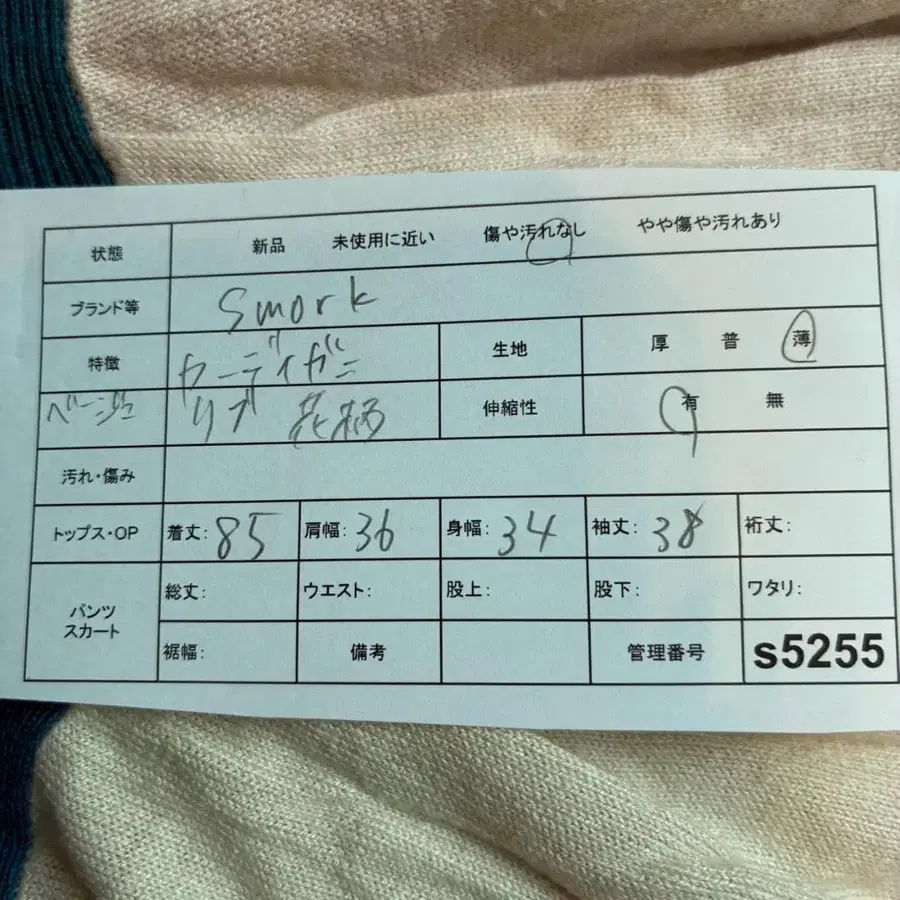 状態 新品 未使用に近い 傷や汚れなし やや傷や汚れあり
ブランド等 Smork
特徴 カーディガン 生地 厚 普 薄
ベージュ リブ 花柄 伸縮性 有 無
汚れ・傷み
トップス・OP 着丈: 85 肩幅: 36 身幅: 34 袖丈: 38 裄丈:
パンツ スカート 総丈: ウエスト: 股上: 股下: ワタリ:
裾幅: 備考 管理番号 s5255